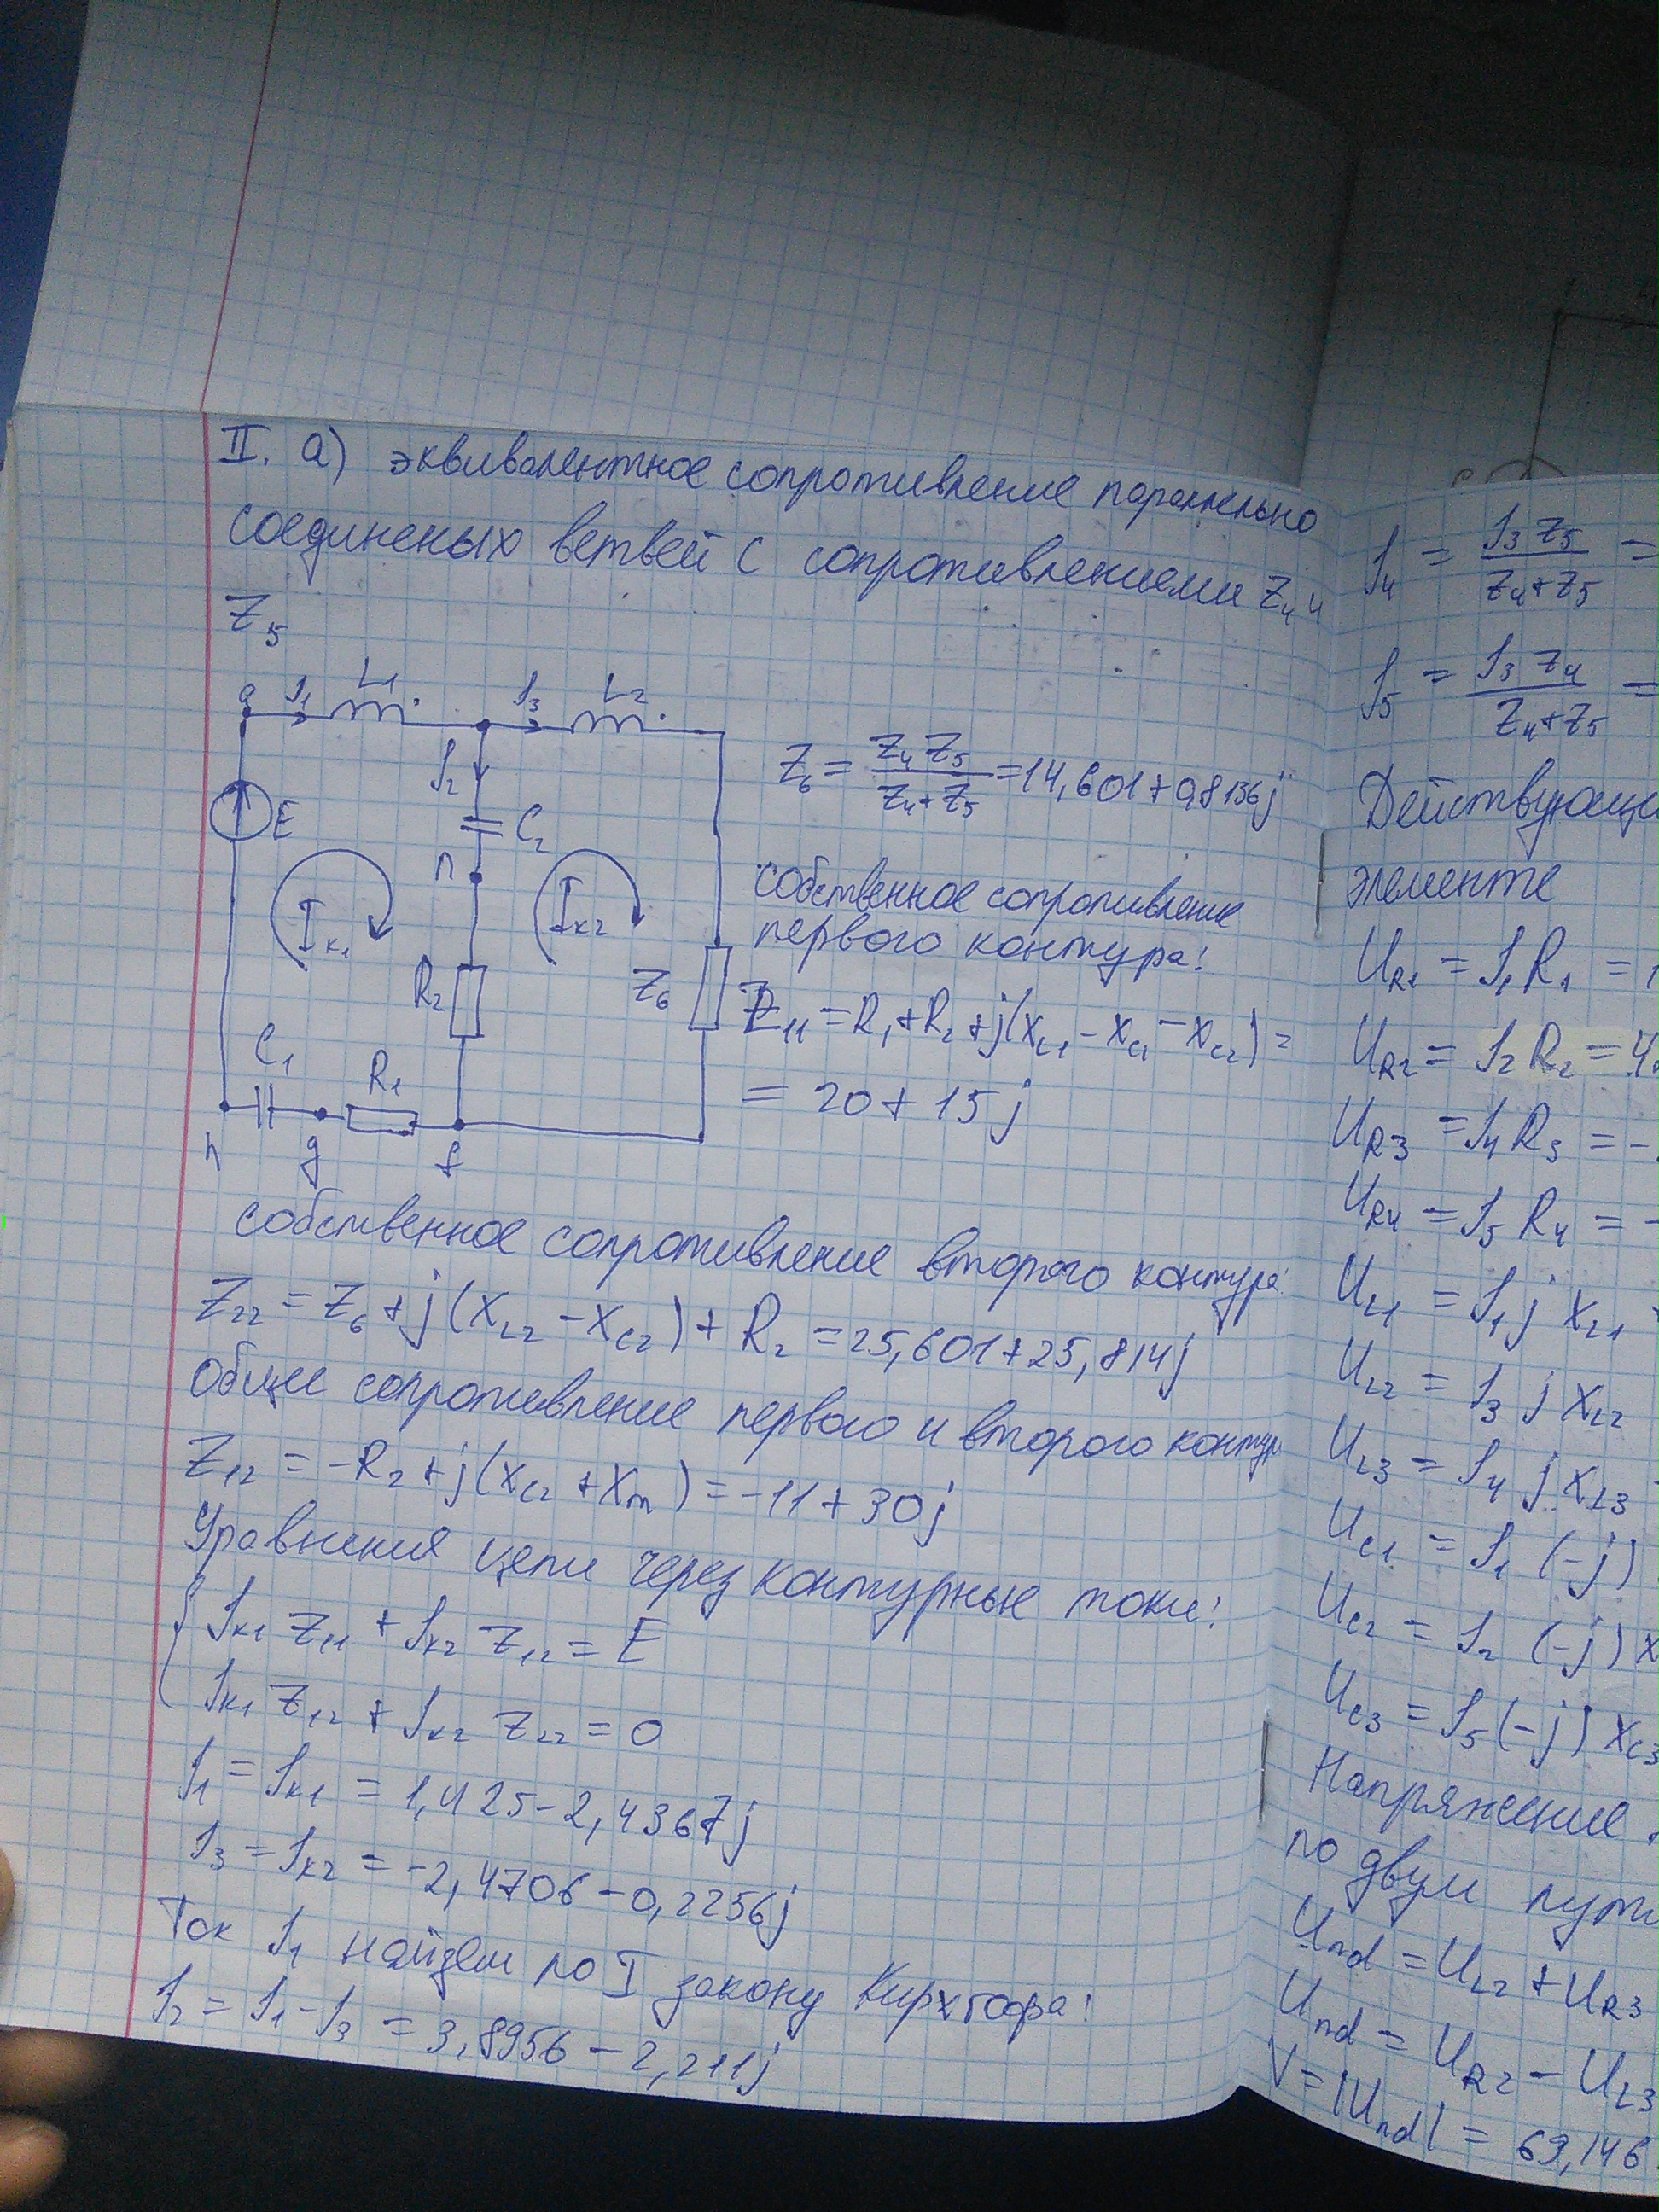 II. а) эквивалентное сопротивление параллельно
соединеных ветвей с сопротивлениями Z₄ и
Z₅
a I₁ L₁ I₃ L₂
I₂
E
C₂
n
Iк₁
Iк₂
R₂
Z₆
C₁
R₁
n g f
Z₆ = Z₄ Z₅ / Z₄+Z₅ = 14,601+0,8136j
собственное сопротивление
первого контура:
Z₁₁ = R₁+R₂+j(X_L1 − X_C1 − X_C2) =
= 20+15j
собственное сопротивление второго контура
Z₂₂ = Z₆+j(X_L2 − X_C2) + R₂ = 25,601+25,814j
Общее сопротивление первого и второго контур
Z₁₂ = −R₂+j(X_C2 + X_m) = −11+30j
Уравнения цепи через контурные токи:
{ Iк₁ Z₁₁ + Iк₂ Z₁₂ = E
Iк₁ Z₁₂ + Iк₂ Z₂₂ = 0
I₁ = Iк₁ = 1,425−2,4367j
I₃ = Iк₂ = −2,4706−0,2256j
Ток I₁ найдем по I закону Кирхгофа:
I₂ = I₁−I₃ = 3,8956−2,211j
I₄ = I₃ Z₅ / Z₄+Z₅ =
I₅ = I₃ Z₄ / Z₄+Z₅ =
Действующ
элементе
U_R1 = I₁R₁ =
U_R2 = I₂R₂ = 4
U_R3 = I₄R₃ = −
U_R4 = I₅R₄ = −
U_L1 = I₁ j X_L1
U_L2 = I₃ j X_L2
U_L3 = I₄ j X_L3
U_C1 = I₁ (−j)
U_C2 = I₂ (−j) X
U_C3 = I₅ (−j) X_C3
Напряжение
по двум пут
U_nd = U_L2 + U_R3
U_nd = U_R2 − U_L3
V = |U_nd| = 69,146